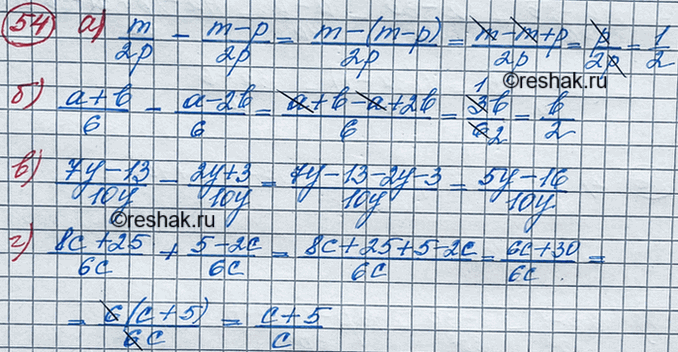 54 а) m/2p - (m-p)/2p = (m-(m-p))/2p = (m-m+p)/2p = p/2p = 1/2
©reshak.ru
б) (a+b)/6 - (a-2b)/6 = (a+b-a+2b)/6 = 1 3b/6 2 = b/2
в) (7y-13)/10y - (2y+3)/10y = (7y-13-2y-3)/10y = (5y-16)/10y
©reshak.ru
г) (8c+25)/6c + (5-2c)/6c = (8c+25+5-2c)/6c = (6c+30)/6c =
= 6(c+5)/6c = (c+5)/c